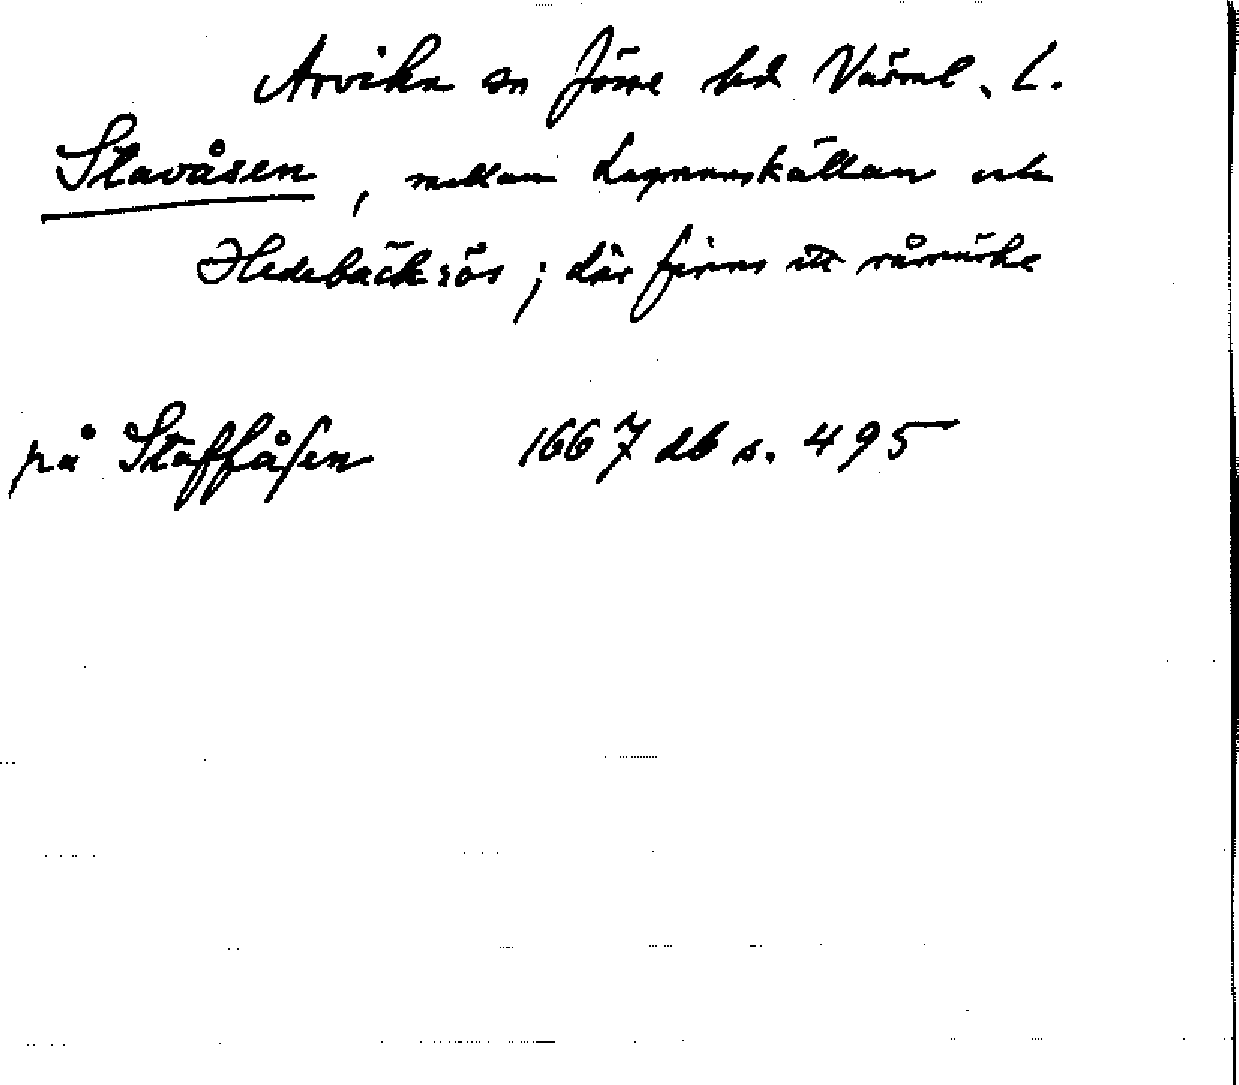 Arvika sn Jösse hd Värml. L.
Stavåsen, mellan Lagmanskällan och
Hedebäcksös; där finns ett råmärke
på Staffåsen 1667 db s. 495